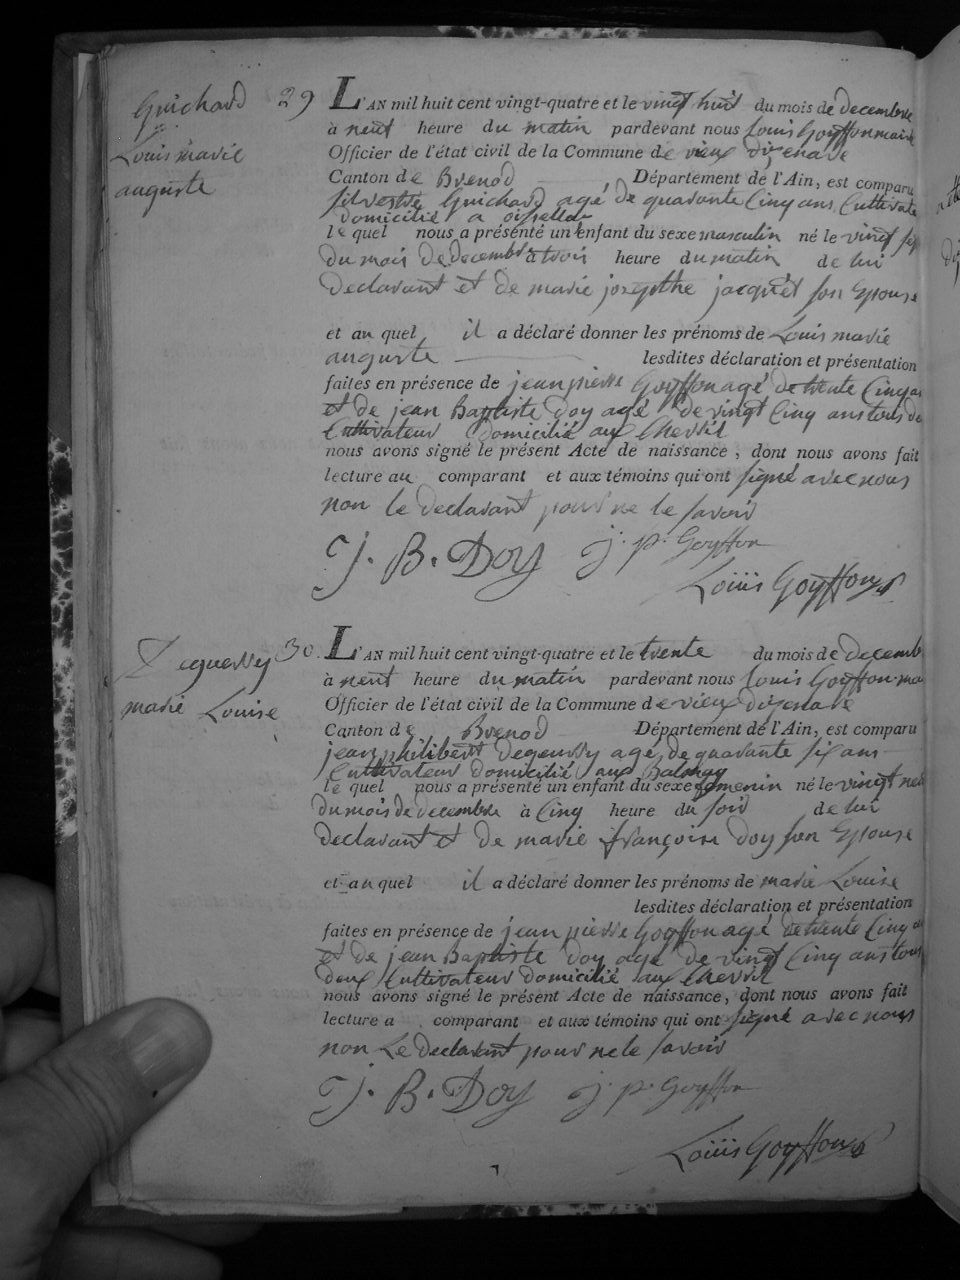 Guichard 29
Louis marie
auguste
L'AN mil huit cent vingt-quatre et le vingt huit du mois de decembre
à neuf heure du matin pardevant nous Louis Goyffon maire
Officier de l'état civil de la Commune de vieux dizenave
Canton de Brenod Département de l'Ain, est comparu
silvestre Guichard agé de quarante Cinq ans Cultivate
domicilié a
le quel nous a présenté un enfant du sexe masculin né le vingt six
du mois de decembre à trois heure du matin de lui
declarant et de marie josephte jacquet son Epouse
et au quel il a déclaré donner les prénoms de Louis marie
auguste lesdites déclaration et présentation
faites en présence de jean pierre Goyffon agé de trente Cinq a
et de jean Baptiste Doy agé de vingt Cinq ans tous de
Cultivateur domicilié aux
nous avons signé le présent Acte de naissance, dont nous avons fait
lecture au comparant et aux témoins qui ont signé avec nous
non le declarant pour ne le savoir
J. B. Doy j. p. Goyffon
Loüis Goyffon
Degueurry 30.
marie Louise
L'AN mil huit cent vingt-quatre et le trente du mois de decemb
à neuf heure du matin pardevant nous Louis Goyffon mai
Officier de l'état civil de la Commune de vieux dizenave
Canton de Brenod Département de l'Ain, est comparu
jean philibert Degeurry agé de quarante six ans
Cultivateur domicilié aux
le quel nous a présenté un enfant du sexe femenin né le vingt neu
du mois de decembre à Cinq heure du soir de lui
declarant et de marie françoise Doy son Epouse
et au quel il a déclaré donner les prénoms de marie Louise
lesdites déclaration et présentation
faites en présence de jean pierre Goyffon agé de trente Cinq a
et de jean Baptiste Doy agé de vingt Cinq ans tous
deux Cultivateur domicilié aux
nous avons signé le présent Acte de naissance, dont nous avons fait
lecture a comparant et aux témoins qui ont signé avec nous
non Le declarant pour ne le savoir
J. B. Doy j. p. Goyffon
Loüis Goyffon